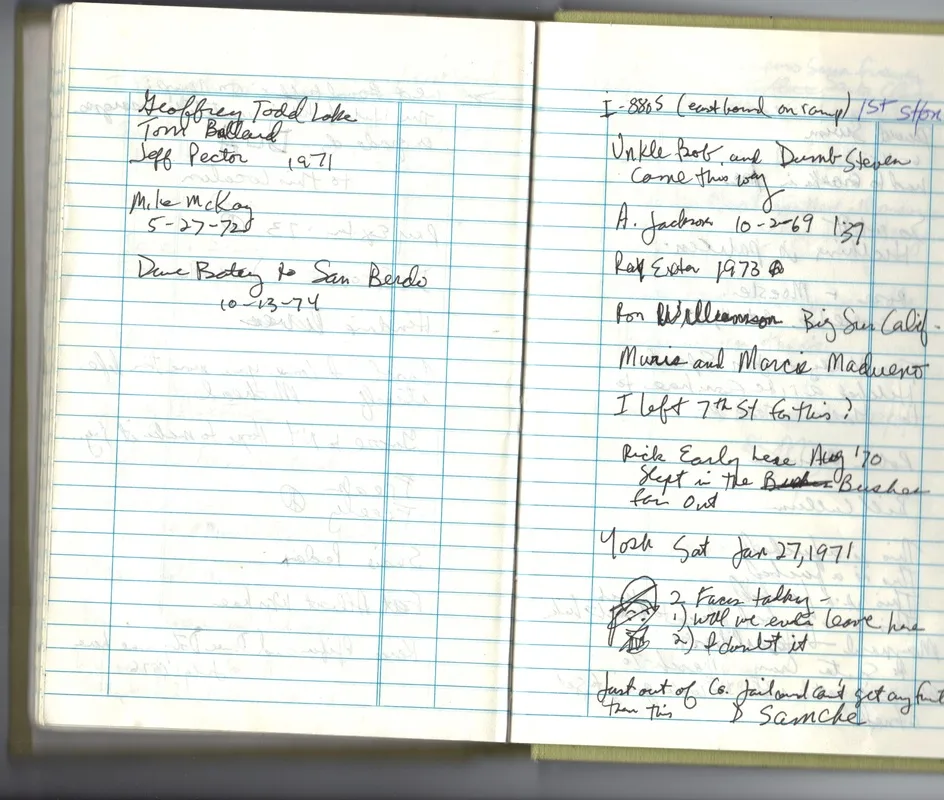 Geoffrey Todd Lake
Tom Ballard
Jeff Pector 1971
Mike McKay
5-27-72
Dave Batey to San Berdo
10-13-74
I-880S (eastbound on ramp) 1st stop
Unkle Bob and Dumb Steven
came this way
A. Jackson 10-2-69 1:37
1973
Ron Williamson Big Sur Calif-
and Marcie Madueno
I left 7th St for this?
Rick Early here Aug '70
Slept in the Bushes
far out
Yosh Sat Jan 27, 1971
2 Faces talking -
1) will we ever leave here
2) I doubt it
Just out of Co. Jail and can't get any
than this D Samche